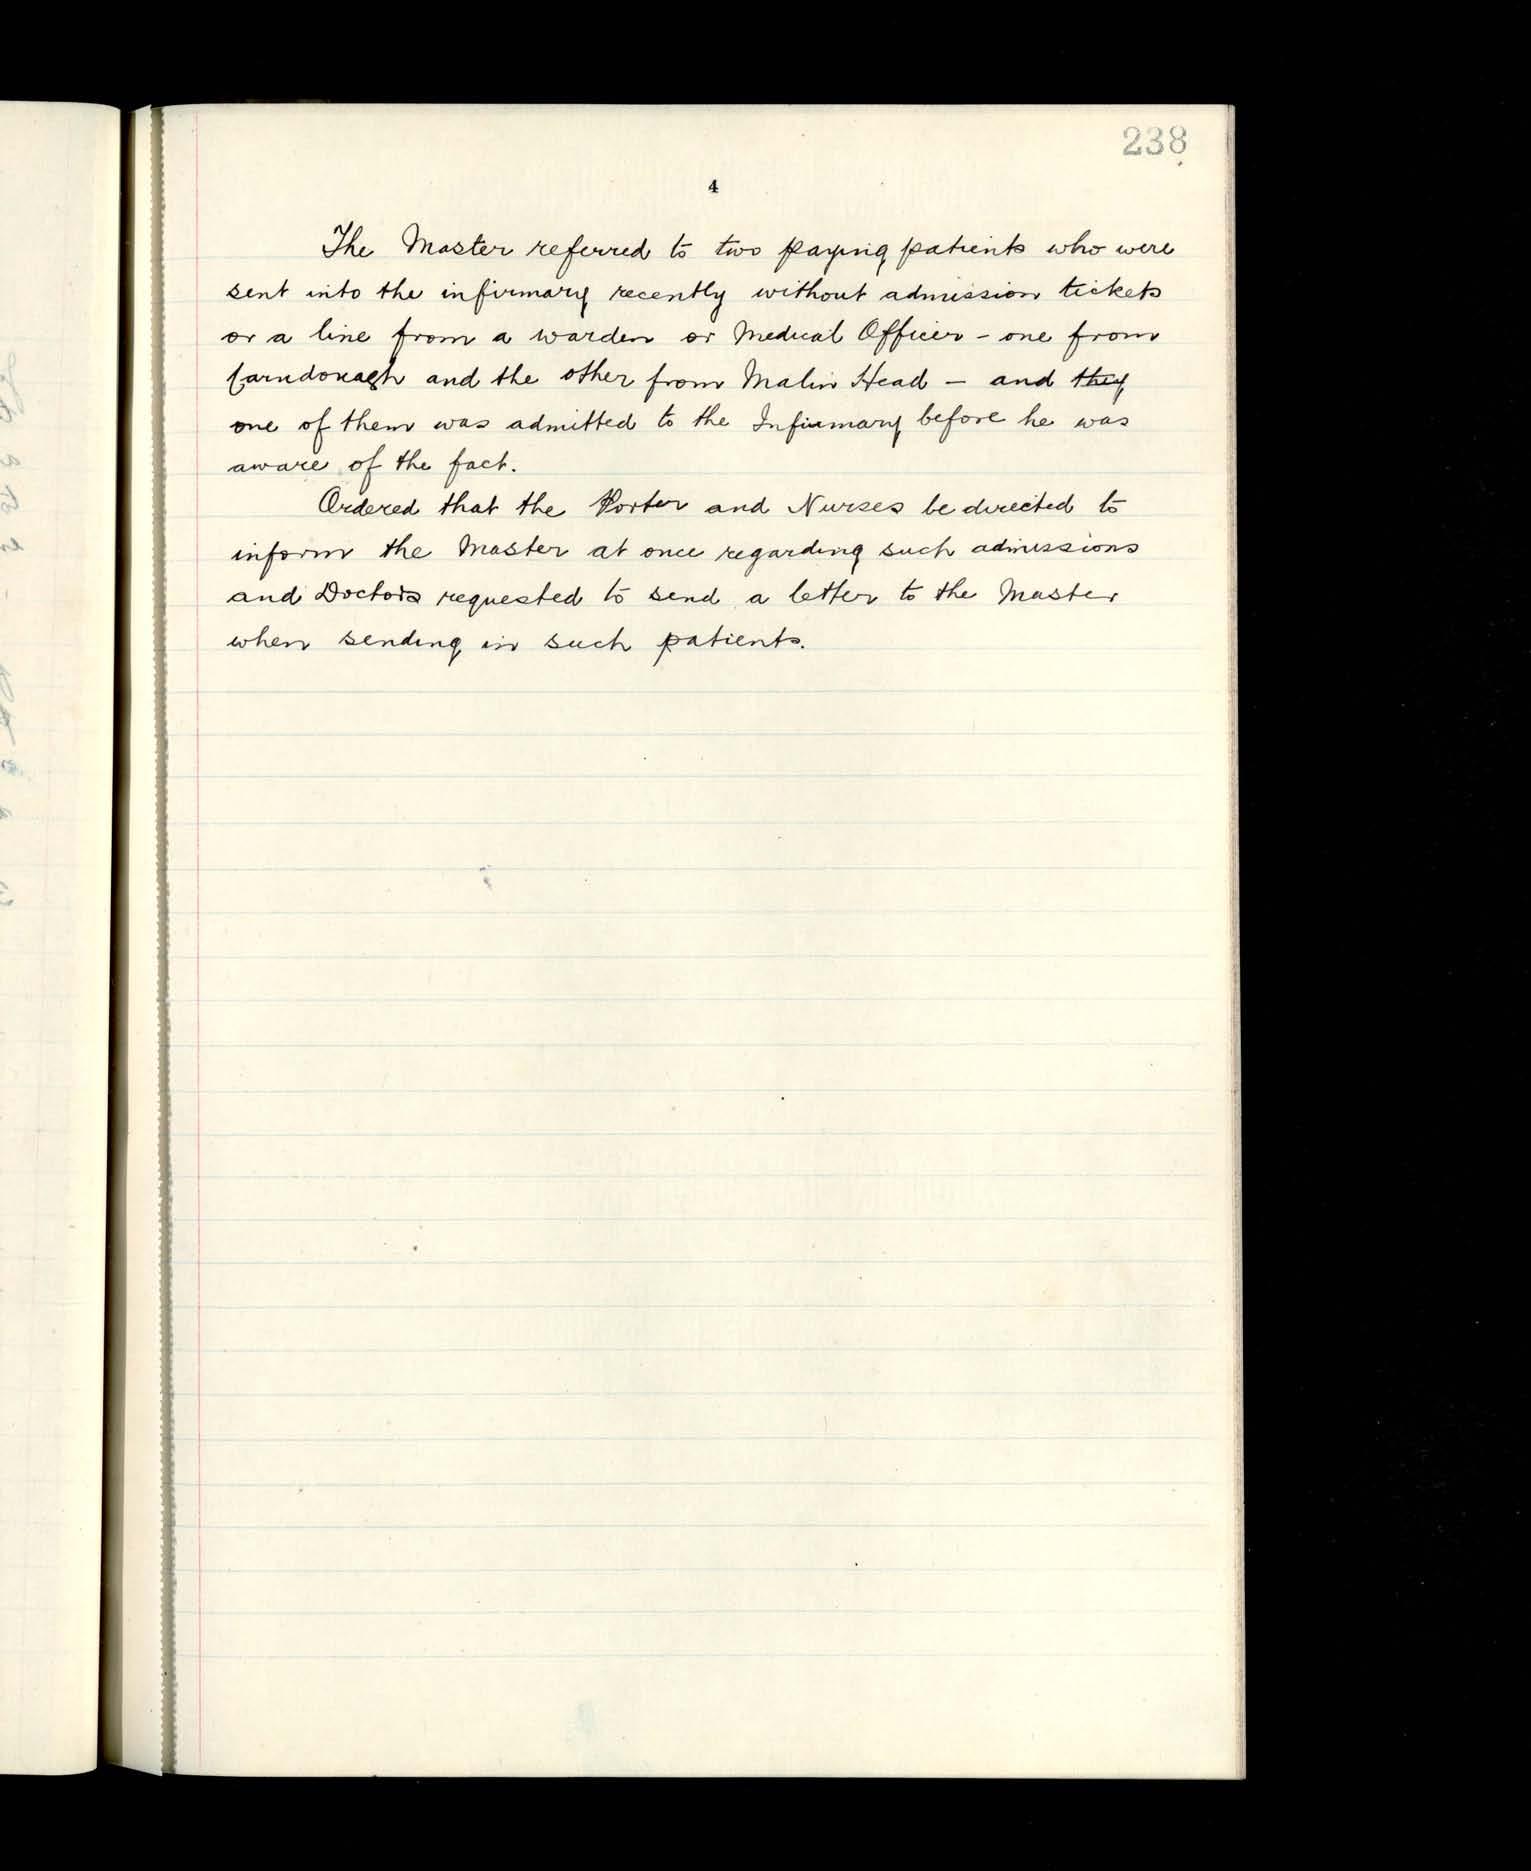 238
4
The Master referred to two paying patients who were
sent into the infirmary recently without admission tickets
or a line from a warden or Medical Officer - one from
Carndonagh and the other from Malin Head - and they
one of them was admitted to the Infirmary before he was
aware of the fact.
Ordered that the Porter and Nurses be directed to
inform the Master at once regarding such admissions
and Doctors requested to send a letter to the Master
when sending in such patients.